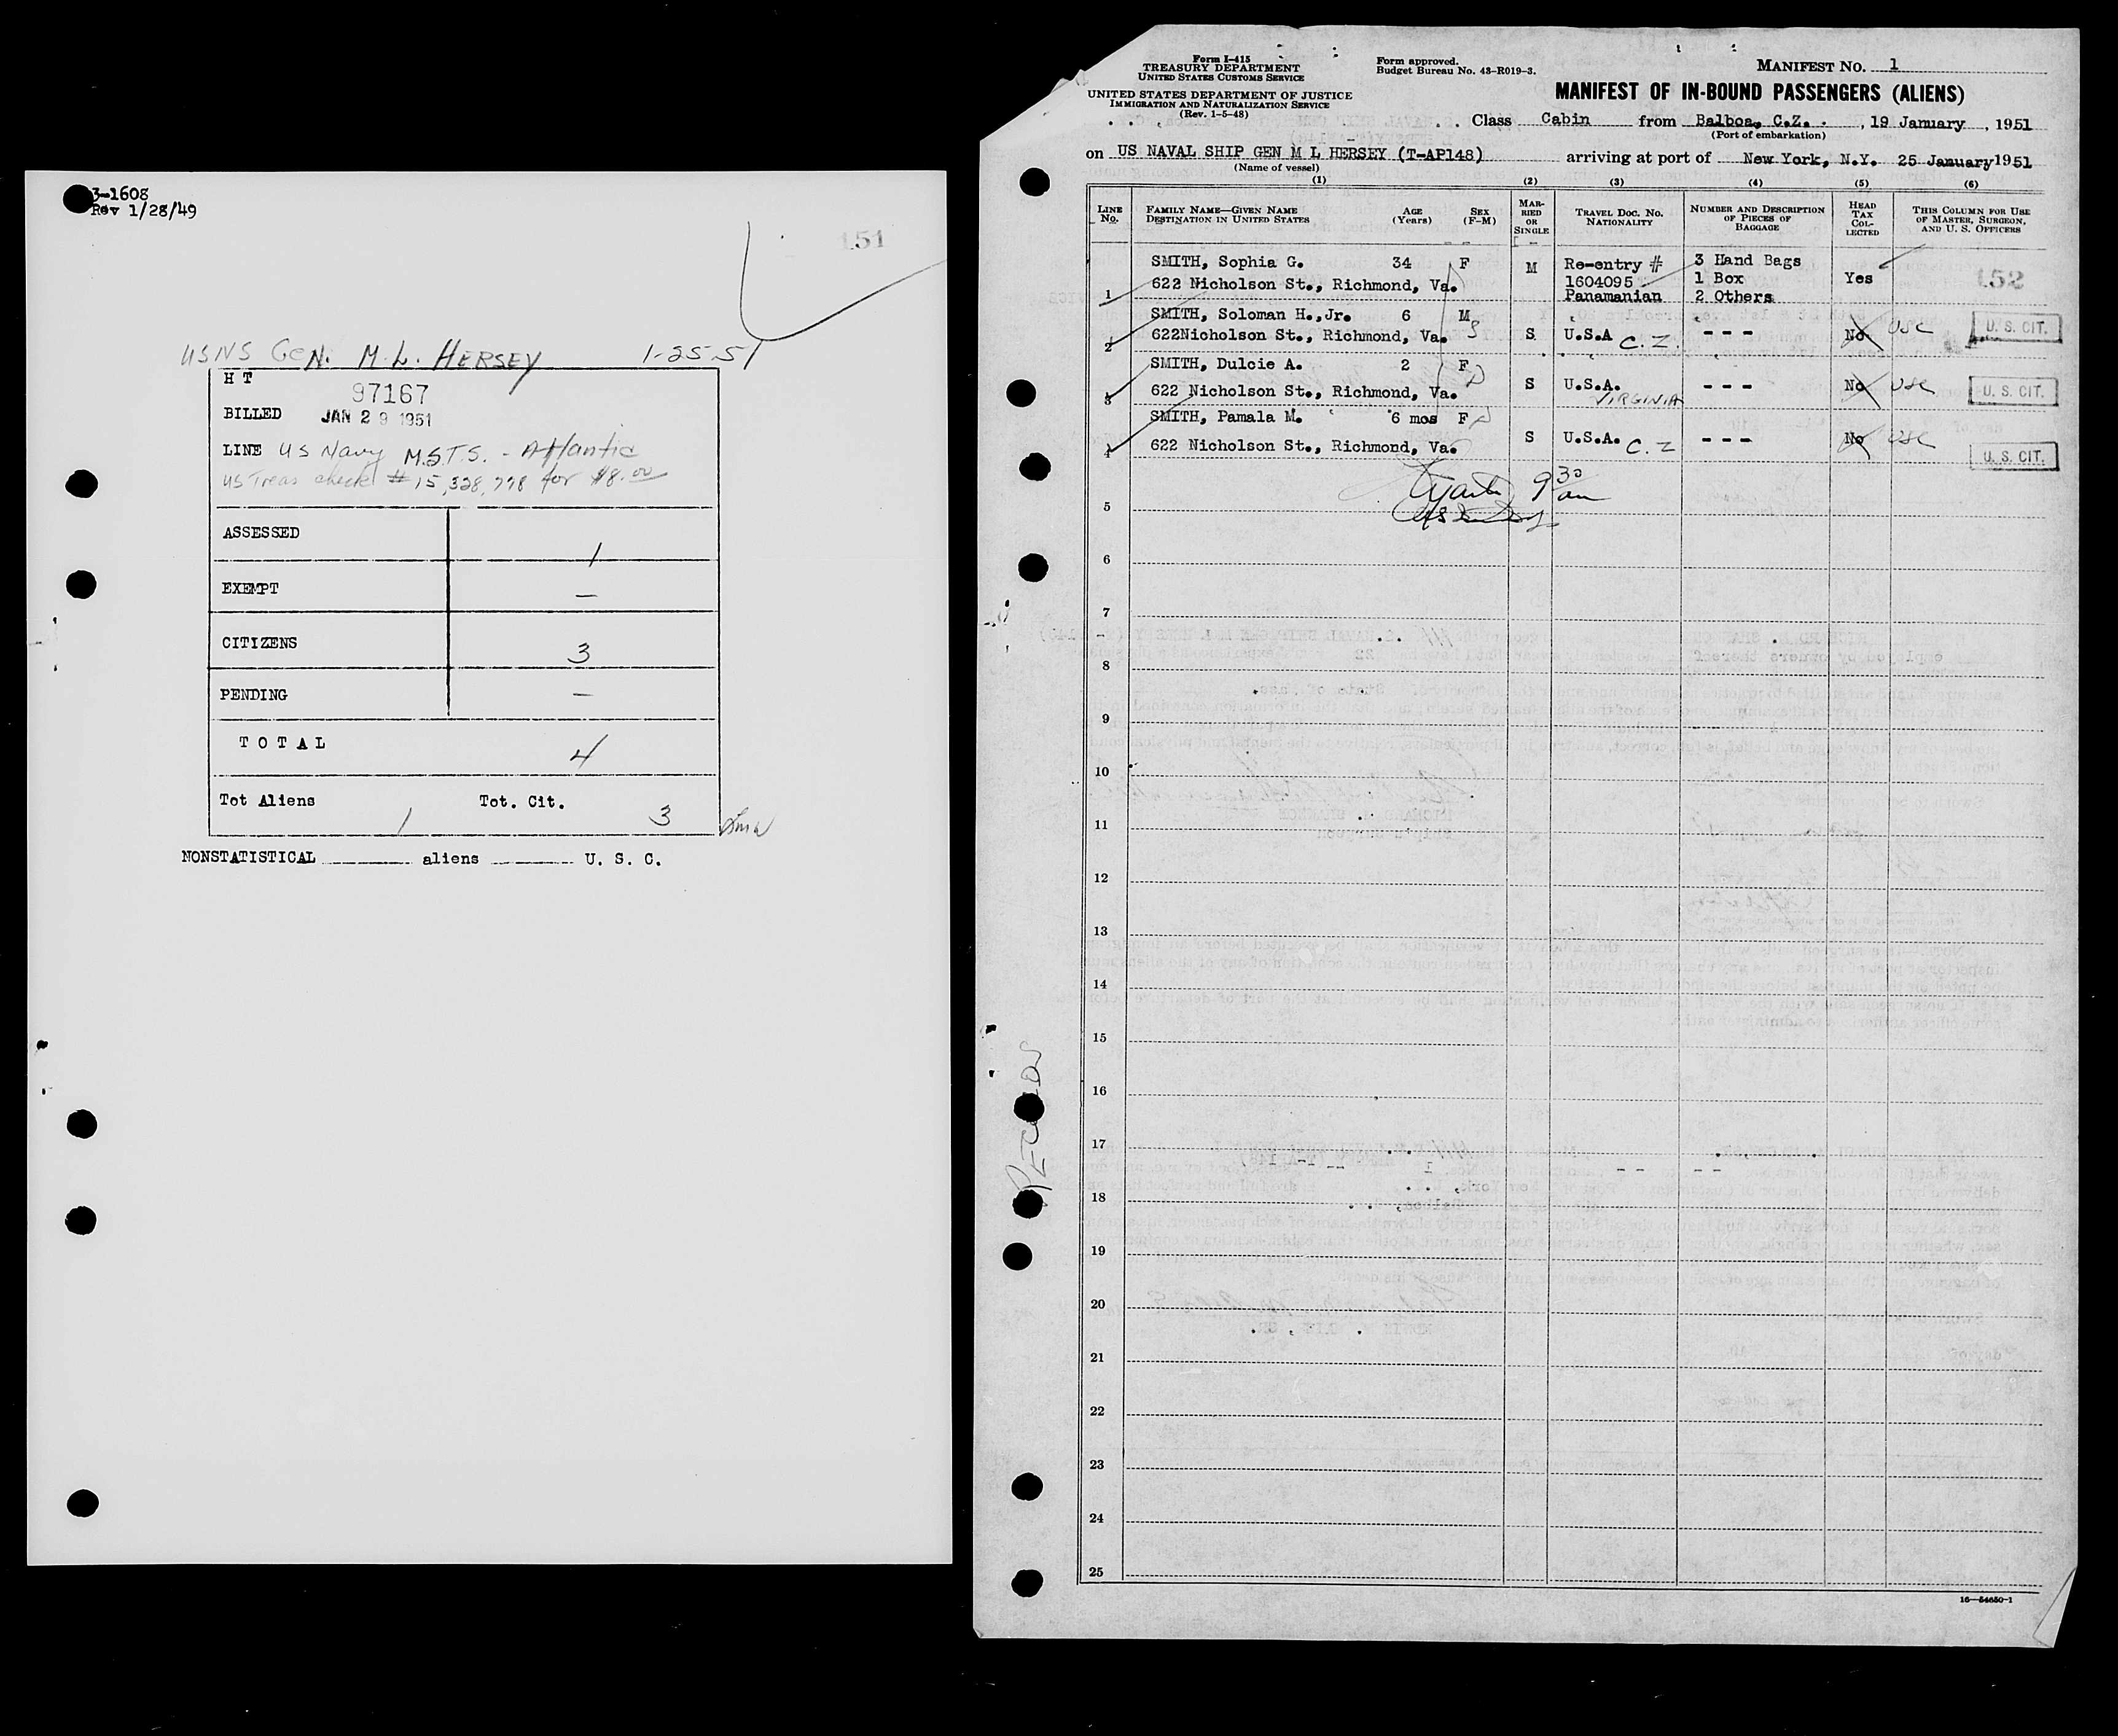 3-1608
Rev 1/28/49
151
USNS GEN. M. L. HERSEY 1-25-51
H T
97167
BILLED JAN 29 1951
LINE US Navy M.S.T.S. - Atlantic
US Treas check # 15,328,798 for $8.00
ASSESSED 1
EXEMPT —
CITIZENS 3
PENDING —
T O T A L 4
Tot Aliens 1 Tot. Cit. 3
NONSTATISTICAL aliens U. S. C.
Form I-415
TREASURY DEPARTMENT
UNITED STATES CUSTOMS SERVICE
UNITED STATES DEPARTMENT OF JUSTICE
IMMIGRATION AND NATURALIZATION SERVICE
(Rev. 1-5-48)
Form approved.
Budget Bureau No. 43-R019-3.
MANIFEST NO. 1
MANIFEST OF IN-BOUND PASSENGERS (ALIENS)
Class Cabin from Balboa, C.Z. , 19 January , 1951
(Port of embarkation)
on US NAVAL SHIP GEN M L HERSEY (T-AP148) arriving at port of New York, N.Y. 25 January 1951
(Name of vessel)
(1) (2) (3) (4) (5) (6)
LINE No. FAMILY NAME—GIVEN NAME DESTINATION IN UNITED STATES AGE (Years) SEX (F-M) MARRIED OR SINGLE TRAVEL DOC. NO. NATIONALITY NUMBER AND DESCRIPTION OF PIECES OF BAGGAGE HEAD TAX COLLECTED THIS COLUMN FOR USE OF MASTER, SURGEON, AND U. S. OFFICERS
SMITH, Sophia G. 34 F M Re-entry # 3 Hand Bags
1 622 Nicholson St., Richmond, Va. 1604095 1 Box Yes 152
Panamanian 2 Others
SMITH, Soloman H.,Jr. 6 M
2 622Nicholson St., Richmond, Va. S S U.S.A C.Z. - - - No USC U. S. CIT.
SMITH, Dulcie A. 2 F
3 622 Nicholson St., Richmond, Va. D S U.S.A. VIRGINIA - - - No USC U. S. CIT.
SMITH, Pamala M. 6 mos F D
4 622 Nicholson St., Richmond, Va. S U.S.A. C.Z - - - No USC U. S. CIT.
9 30 am
5
6
7
8
9
10
11
12
13
14
15
16
17
18
19
20
21
22
23
24
25
16—54650-1